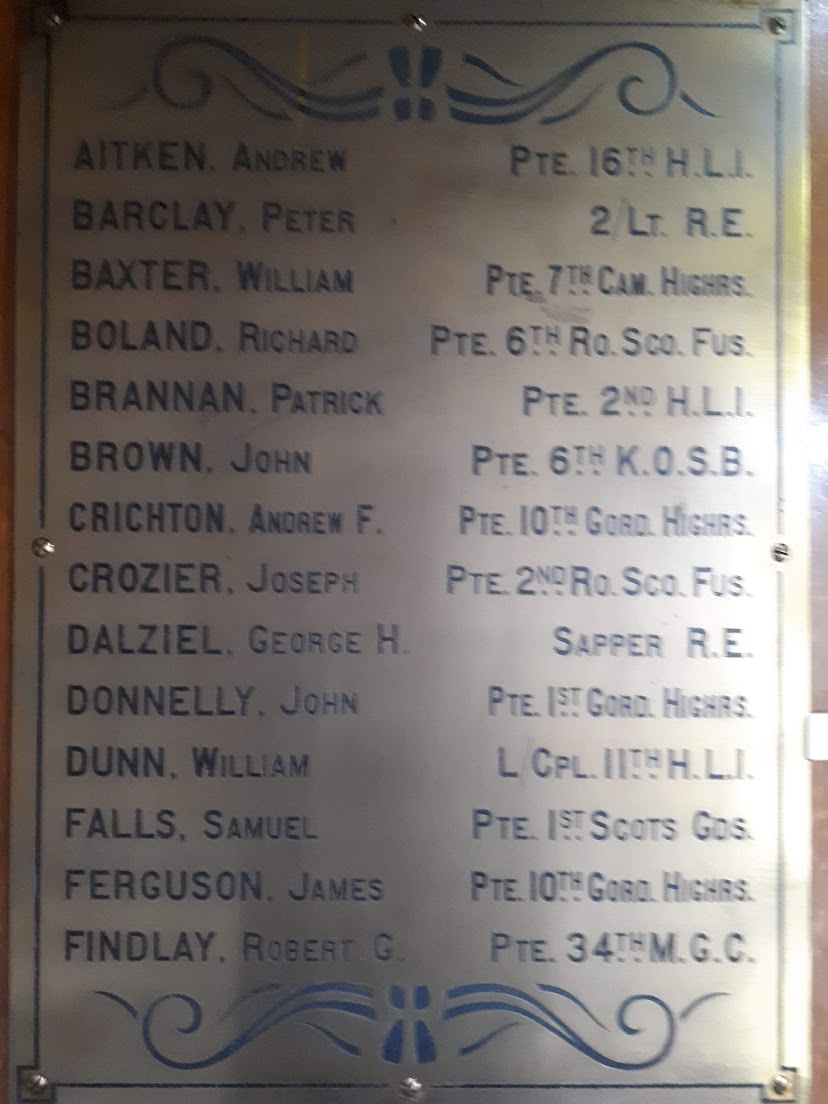 AITKEN, ANDREW PTE. 16TH H.L.I.
BARCLAY, PETER 2/LT. R.E.
BAXTER, WILLIAM PTE. 7TH CAM. HIGHRS.
BOLAND, RICHARD PTE. 6TH RO. SCO. FUS.
BRANNAN, PATRICK PTE. 2ND H.L.I.
BROWN, JOHN PTE. 6TH K.O.S.B.
CRICHTON, ANDREW F. PTE. 10TH GORD. HIGHRS.
CROZIER, JOSEPH PTE. 2ND RO. SCO. FUS.
DALZIEL, GEORGE H. SAPPER R.E.
DONNELLY, JOHN PTE. 1ST GORD. HIGHRS.
DUNN, WILLIAM L/CPL. 11TH H.L.I.
FALLS, SAMUEL PTE. 1ST SCOTS GDS.
FERGUSON, JAMES PTE. 10TH GORD. HIGHRS.
FINDLAY, ROBERT G. PTE. 34TH M.G.C.